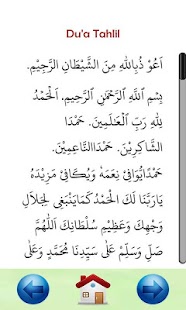 Du'a Tahlil
اَعُوْ ذُبِاللهِ مِنَ الشَّيْطَانِ الرَّجِيْمِ.
بِسْمِ اللهِ الرَّحْمٰنِ الرَّحِيْمِ. اَلْحَمْدُ
لِلّٰهِ رَبِّ الْعٰلَمِيْنَ. حَمْدَ
الشَّاكِرِيْنَ. حَمْدَ النَّاعِمِيْنَ.
حَمْدًايُّوَافِيْ نِعَمَهُ وَيُكَافِئُ مَزِيْدَهُ
يَارَبَّنَا لَكَ الْحَمْدُ كَمَايَنْبَغِيْ لِجَلَالِ
وَجْهِكَ وَعَظِيْمِ سُلْطَانِكَ اَللّٰهُمَّ
صَلِّ وَسَلِّمْ عَلٰى سَيِّدِنَا مُحَمَّدٍ وَعَلٰى